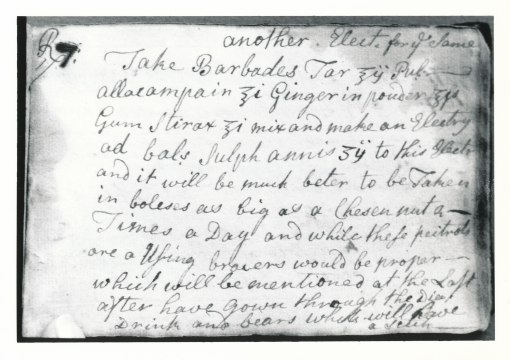 ℞ 7. another Elect. for yᵉ Same
Take Barbades Tar ʒij Pulv
allacampain ʒi Ginger in pouder ʒſs
Gum Stirax ʒi mix and make an Electry
ad bals Sulph annis ʒij to this Elect
and it will be much beter to be Taken
in boleses as big as a Chesennut a
Times a Day and while these peitrols
are a Using would be propar
which will be mentioned at the Last
after have Gown through the Diat
Drink and bears which will have
a